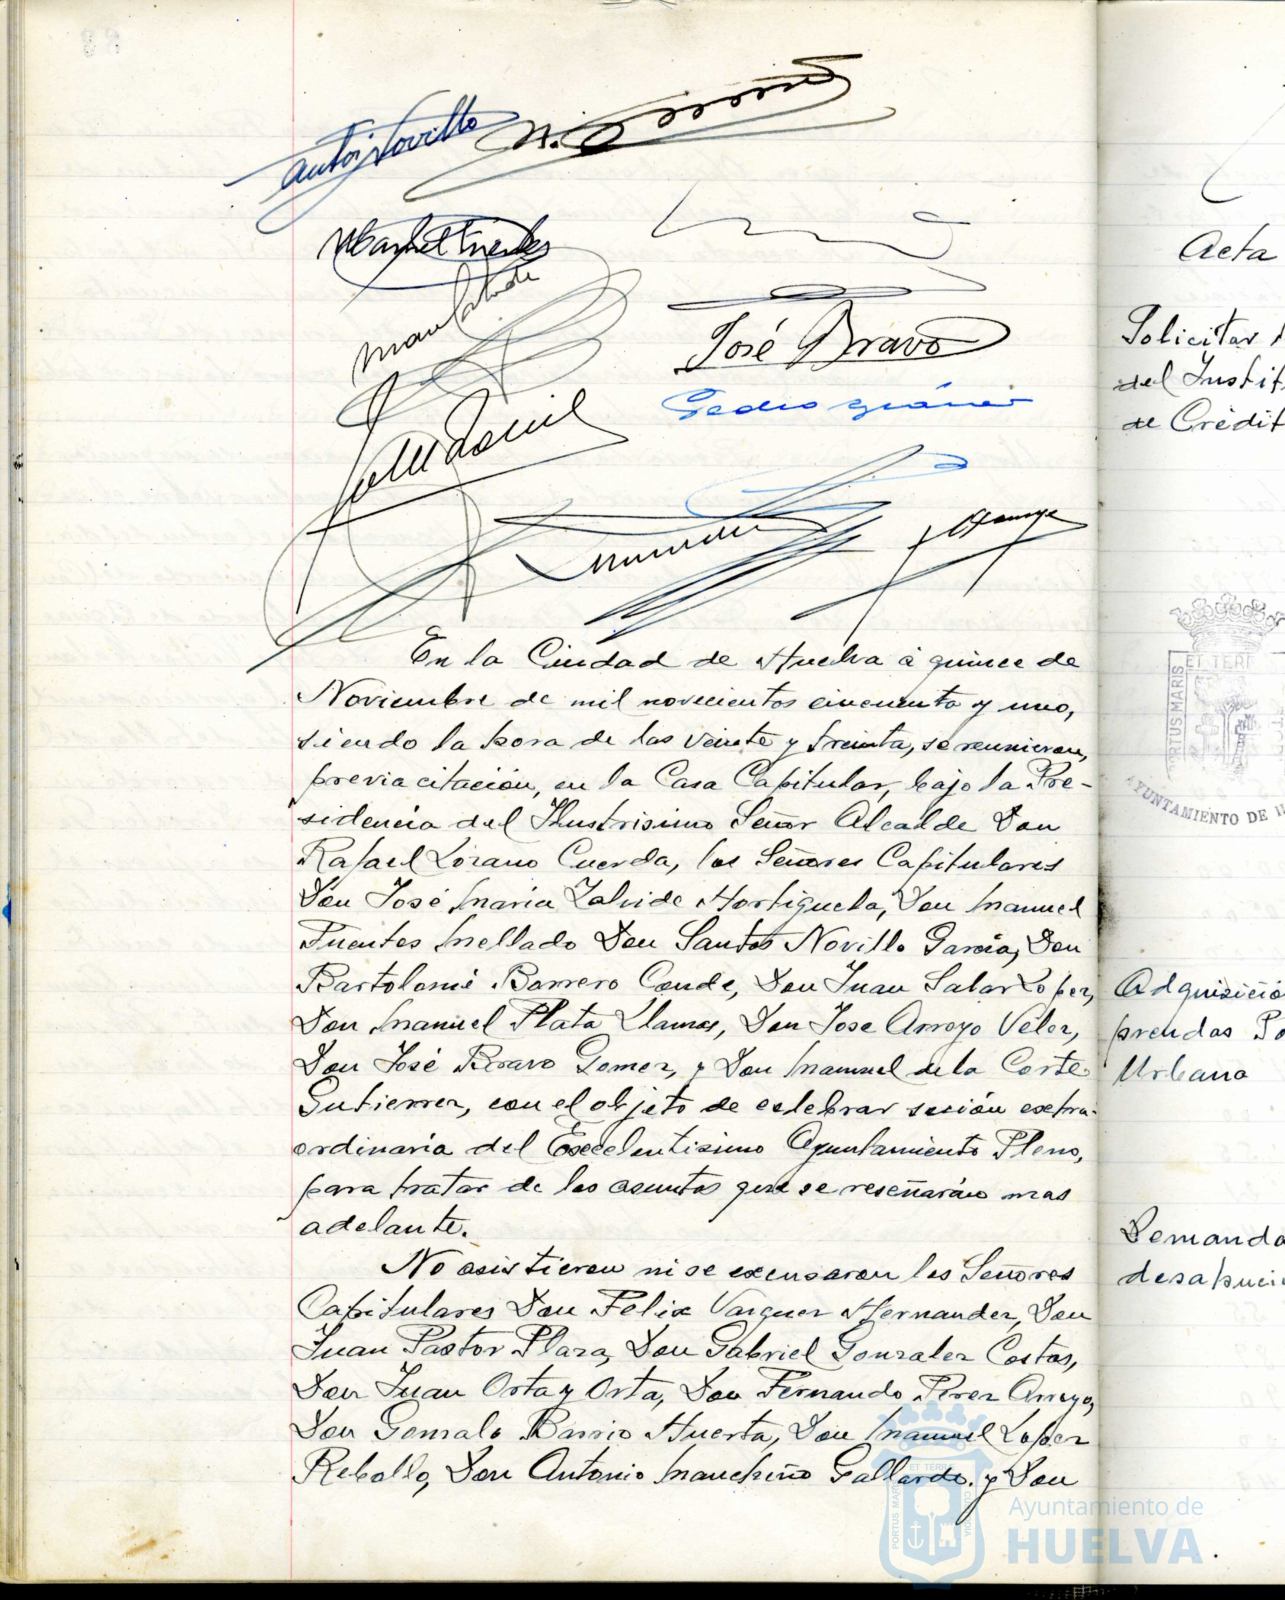 José Bravo
En la Ciudad de Huelva á quince de
Noviembre de mil novecientos cincuenta y uno,
siendo la hora de las veinte y treinta, se reunieron,
previa citación, en la Casa Capitular, bajo la Pre-
sidencia del Ilustrisimo Señor Alcalde Don
Rafael Lozano Cuerda, los Señores Capitulares
Don José Maria Zalvide Hortiguela, Don Manuel
Fuentes Mellado Don Santos Novillo Garcia, Don
Bartolomé Borrero Conde, Don Juan Salar Lopez,
Don Manuel Plata Llamas, Don Jose Arroyo Velez,
Don José Bravo Gomez, y Don Manuel de la Corte
Gutierrez, con el objeto de celebrar sesión extra-
ordinaria del Excelentisimo Ayuntamiento Pleno,
para tratar de los asuntos que se reseñarán mas
adelante.
No asistieron ni se excusaron los Señores
Capitulares Don Felix Vazquez Hernandez, Don
Juan Pastor Plaza, Don Gabriel Gonzalez Costas,
Don Juan Orta y Orta, Don Fernando Perez Arroyo,
Don Gonzalo Barrio Huerta, Don Manuel Lopez
Rebollo, Don Antonio Mancheño Gallardo. y Don
Acta
Solicitar
del Instit
de Crédit
ET TERR
PORTUS MARIS
AYUNTAMIENTO DE
Adquisició
prendas Po
Urbana
Demanda
desahuci
PORTUS MARIS
ET TERRE
CUSTODIA
Ayuntamiento de
HUELVA